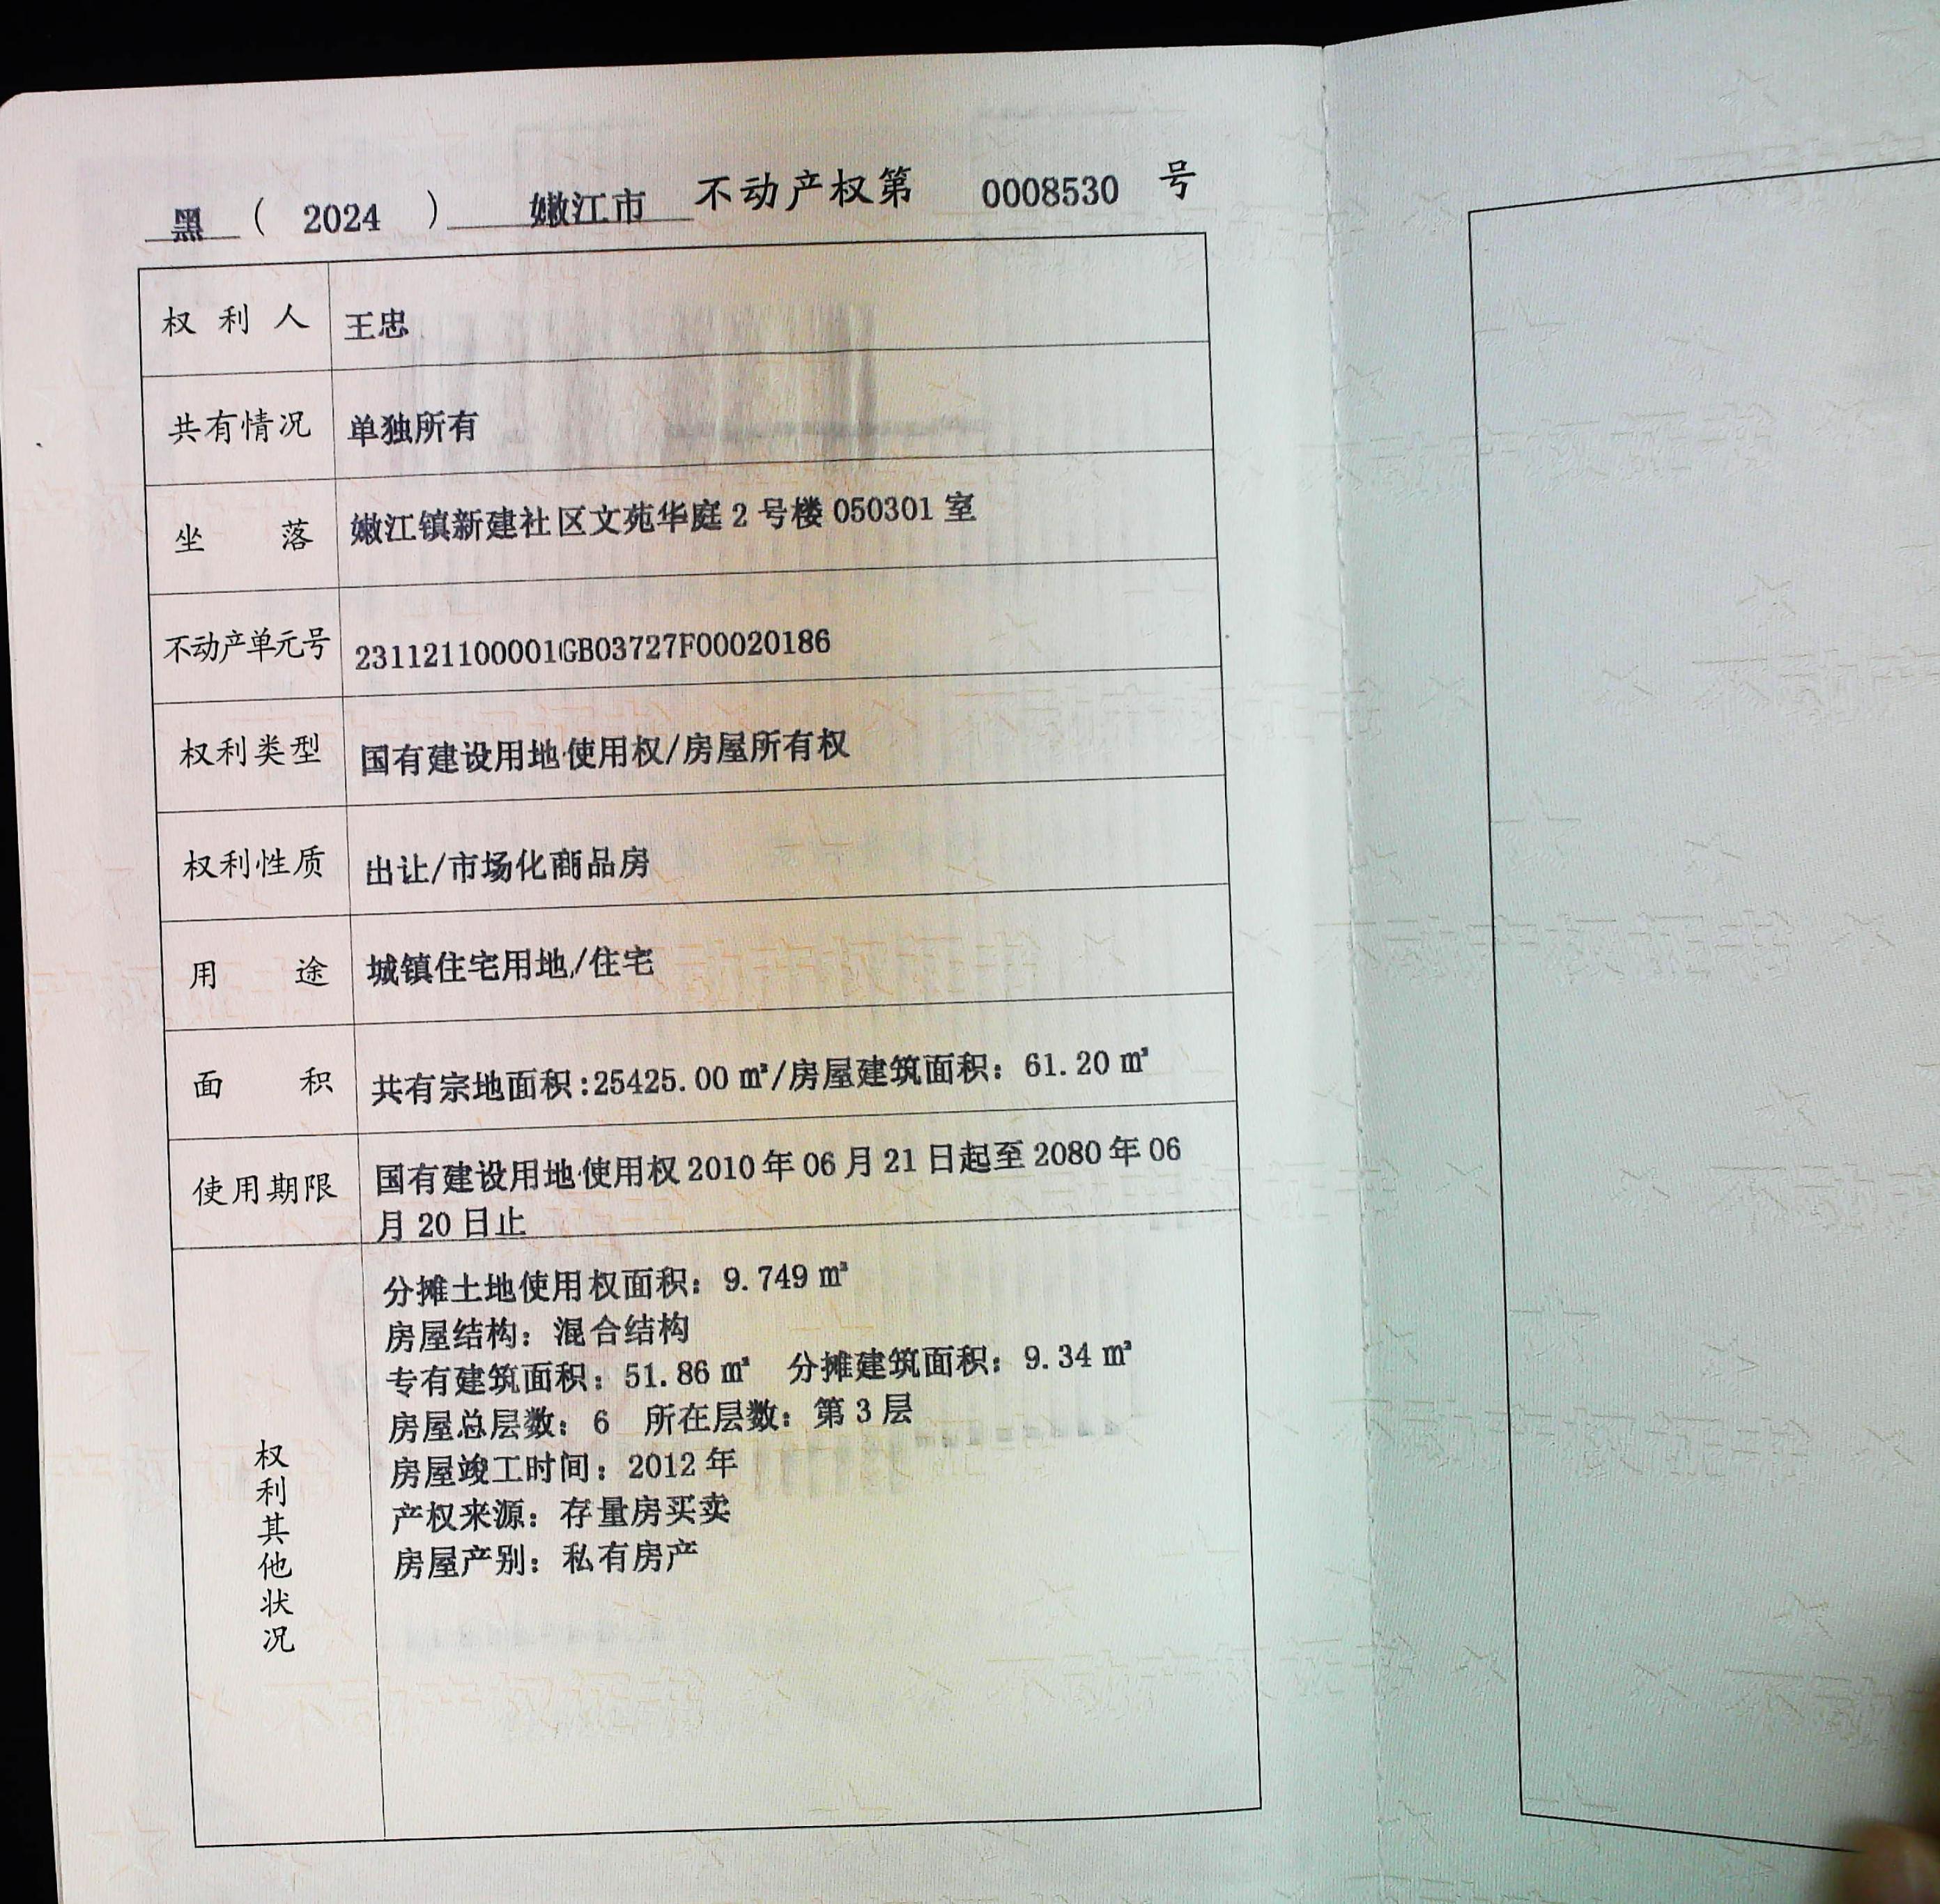 黑 ( 2024 ) 嫩江市 不动产权第 0008530 号
权利人 王忠
共有情况 单独所有
坐落 嫩江镇新建社区文苑华庭2号楼050301室
不动产单元号 231121100001GB03727F00020186
权利类型 国有建设用地使用权/房屋所有权
权利性质 出让/市场化商品房
用途 城镇住宅用地/住宅
面积 共有宗地面积:25425.00㎡/房屋建筑面积：61.20㎡
使用期限 国有建设用地使用权2010年06月21日起至2080年06
月20日止
权利其他状况
分摊土地使用权面积：9.749㎡
房屋结构：混合结构
专有建筑面积：51.86㎡ 分摊建筑面积：9.34㎡
房屋总层数：6 所在层数：第3层
房屋竣工时间：2012年
产权来源：存量房买卖
房屋产别：私有房产